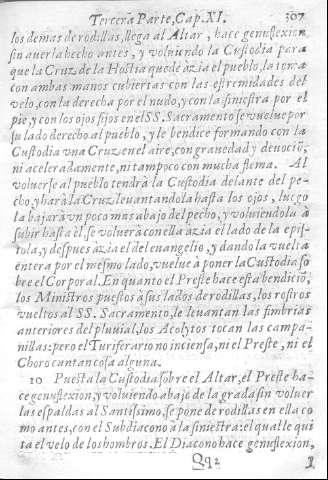 Tercera Parte, Cap. XI. 307
los demas de rodillas, llega al Altar, hace genuflexion
sin averla hecho antes, y volviendo la Custodia para
que la Cruz de la Hostia quede àzia el pueblo, la toma
con ambas manos cubiertas con las estremidades del
velo, con la derecha por el nudo, y con la siniestra por el
pie, y con los ojos fijos en el SS. Sacramento se vuelve por
su lado derecho al pueblo, y le bendice formando con la
Custodia una Cruz en el aire, con gravedad y devociõ,
ni aceleradamente, ni tampoco con mucha flema. Al
volverse al pueblo tendrà la Custodia delante del pe-
cho, y harà la Cruz levantandola hasta los ojos, luego
la bajarà vn poco mas abajo del pecho, y volviendola à
subir hasta èl, se volverà con ella àzia el lado de la epis-
tola, y despues àzia el del evangelio, y dando la vuelta
entera por el mesmo lado, vuelve à poner la Custodia so
bre el Corporal. En quanto el Preste hace esta bendiciõ,
los Ministros puestos à sus lados de rodillas, los rostros
vueltos al SS. Sacramento, le levantan las fimbrias
anteriores del pluvial, los Acolytos tocan las campa-
nillas: pero el Turiferario no inciensa, ni el Preste, ni el
Choro cantan cosa alguna.
10 Puesta la Custodia sobre el Altar, el Preste ha-
ce genuflexion, y volviendo abajo de la grada sin volver
las espaldas al Santissimo, se pone de rodillas en ella co
mo antes, con el Subdiacono à la siniestra: el qual le qui
ta el velo de los hombros. El Diacono hace genuflexion,
Qq 2